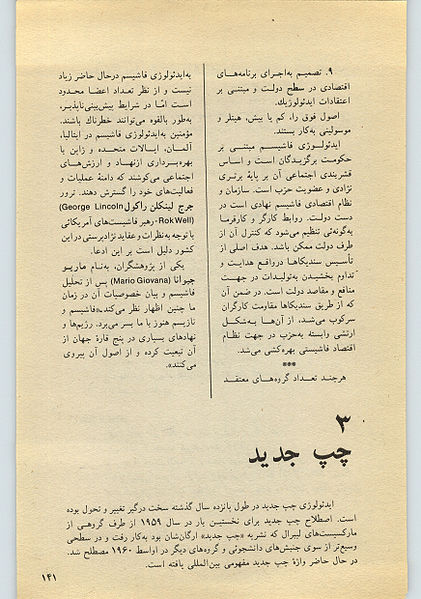 ۹. تصمیم به‌اجرای برنامه‌های
اقتصادی در سطح دولت و مبتنی بر
اعتقادات ایدئولوژیك.
اصول فوق را، کم یا بیش، هیتلر و
موسولینی به‌کار بستند.
ایدئولــوژی فاشیســم مبتنــی بر
حکومــت برگزیــدگان اســت و اساس
قشربندی اجتماعی آن بر پایهٔ برتری
نژادی و عضویت حزب است. سازمان و
نظام اقتصادی فاشیسم نهادی است در
دست دولت. روابط کارگر و کارفرما
به‌گونه‌ئی تنظیم می‌شود که کنترل آن از
طرف دولت ممکن باشد. هدف اصلی از
تأسیس سندیکاها درواقع هدایت و
تداوم بخشیدن به‌تولیدات در جهــت
منافع و مقاصد دولت است. در ضمن آن
که از طریق سندیکاها مقاومت کارگران
سرکوب می‌شد، از آن‌ها به‌شــکل
ارتشی وابسته به‌حزب در جهت نظام
اقتصاد فاشیستی بهره‌کشی می‌شد.
***
هرچند تعداد گروه‌های معتقد
به‌ایدئولوژی فاشیسم درحال حاضر زیاد
نیست و از نظر تعداد اعضا محدود
است امّا در شرایط پیش‌بینی‌ناپذیر،
به‌طور بالقوه می‌توانند خطرناك باشند.
مؤمنین به‌ایدئولوژی فاشیسم در ایتالیا،
آلمــان، ایــالات متحــده و ژاپن با
بهره‌بــرداری ازنهــاد و ارزش‌هــای
اجتماعی می‌کوشند که دامنهٔ عملیات و
فعالیت‌های خود را گسترش دهند. ترور
جرج لینکلن راکول (George Lincoln
RokWell)-رهبر فاشیست‌های آمریکائی
با توجه به‌نظرات و عقاید نژادپرستی در این
کشور دلیل است بر این ادعا.
یکی از پژوهشگران، به‌نام ماریــو
جیوانا (Mario Giovana) پس از تحلیل
فاشیسم و بیان خصوصیات آن در زمان
ما چنین اظهار نظر می‌کند: «فاشیسم و
نازیسم هنوز با ما بسر می‌برد. رژیم‌ها و
نهادهای بسیاری در پنج قارهٔ جهان از
آن تبعیت کرده و از اصول آن پیروی
می‌کنند».
۳
چپ جدید
ایدئولوژی چپ جدید در طول پانزده سال گذشته سخت درگیر تغییر و تحول بوده
است. اصطلاح چپ جدید برای نخستین بار در سال ۱۹۵۹ از طرف گروهی از
مارکسیست‌های لیبرال که نشریه «چپ جدید» ارگان‌شان بود به‌کار رفت و در سطحی
وسیع‌تر از سوی جنبش‌های دانشجوئی و گروه‌های دیگر در اواسط ۱۹۶۰ مصطلح شد.
در حال حاضر واژهٔ چپ جدید مفهومی بین‌المللی یافته است.
۱۴۱